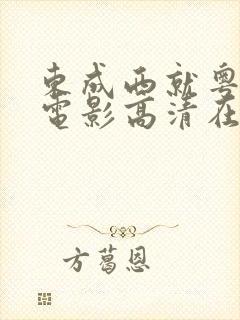 東成西就粵
電影高清在
方葛恩